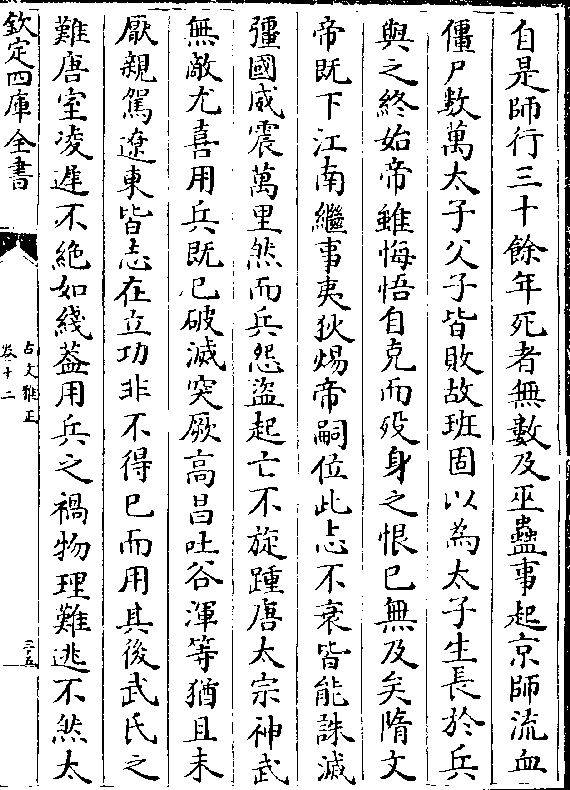 自是師行三十餘年死者無數及巫蠱事起京師流血
僵尸數萬太子父子皆敗故班固以為太子生長於兵
與之終始帝雖悔悟自克而歿身之恨已無及矣隋文
帝既下江南繼事夷狄煬帝嗣位此志不衰皆能誅滅
彊國威震萬里然而兵怨盜起亡不旋踵唐太宗神武
無敵尤喜用兵既已破滅突厥高昌吐谷渾等猶且未
厭親駕遼東皆志在立功非不得已而用其後武氏之
難唐室凌遲不絶如綫葢用兵之禍物理難逃不然太
欽定四庫全書
古文雅正
卷十二
二十五